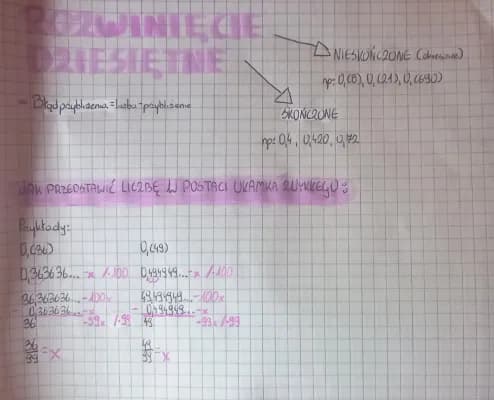 ROZWINIĘCIE
DZIESIĘTNE
NIESKOŃCZONE (okresowe)
np: 0,(6), 0,(21), 0,(690)
- Błąd przybliżenia = liczba - przybliżenie
SKOŃCZONE
np: 0,4, 0,420, 0,72
JAK PRZEDSTAWIĆ LICZBĘ W POSTACI UŁAMKA ZWYKŁEGO:
Przykłady:
0,(36)
0,363636... - x /·100
36,363636... - 100x
0,363636... - x
36 - 99x /·99
36/99 = x
0,(49)
0,494949... - x /·100
49,494949... - 100x
- 0,494949... - x
49 - 99x /·99
49/99 = x